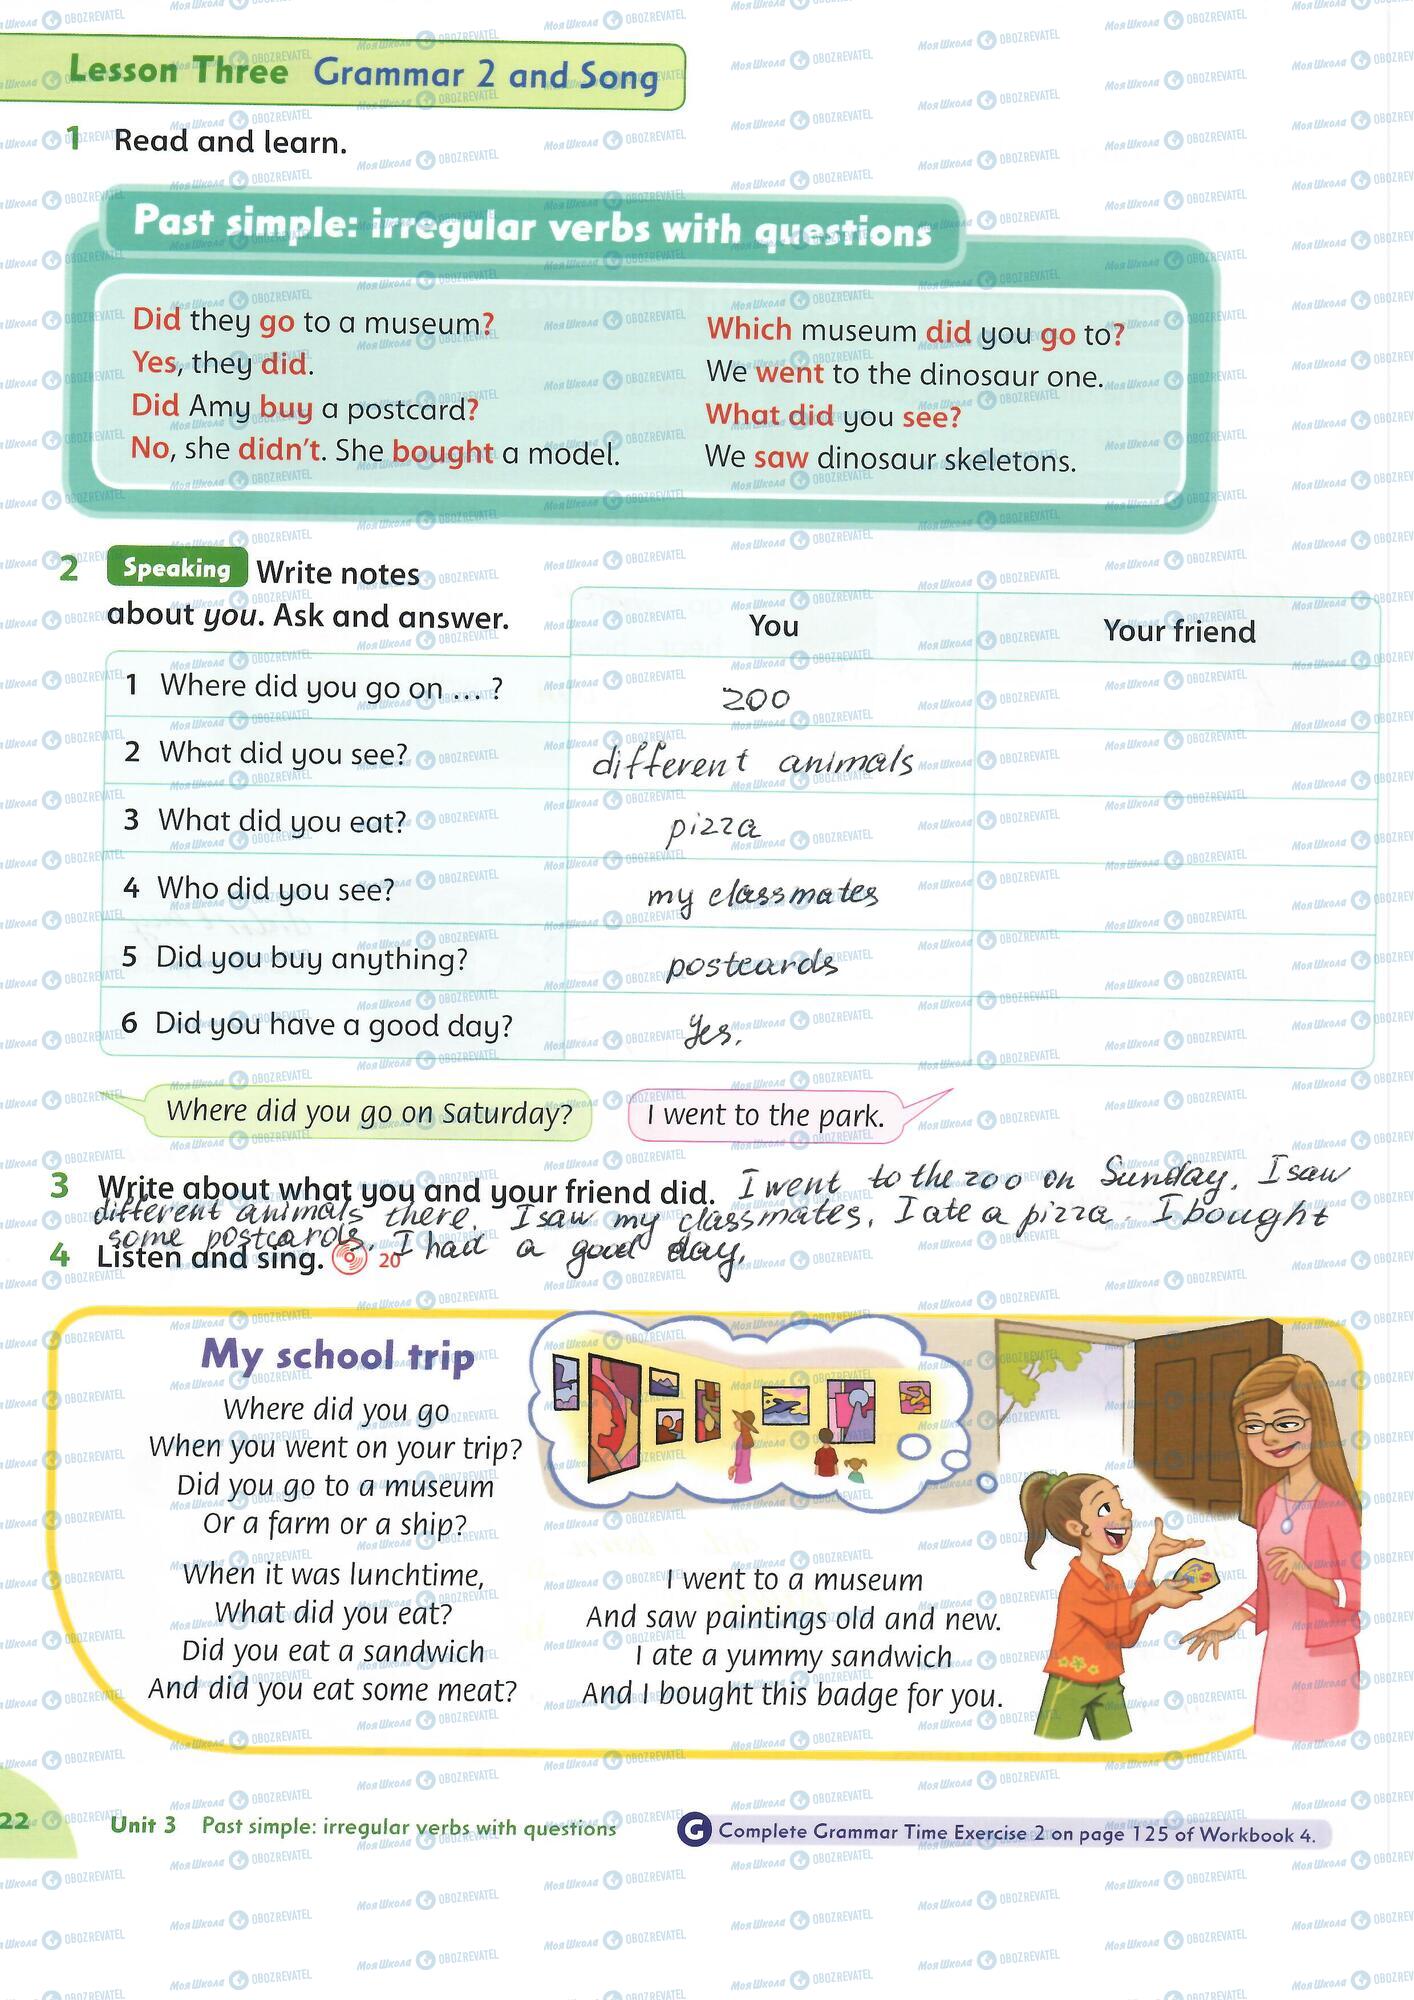 Lesson Three Grammar 2 and Song
1 Read and learn.
Past simple: irregular verbs with questions
Did they go to a museum?
Yes, they did.
Did Amy buy a postcard?
No, she didn't. She bought a model.
Which museum did you go to?
We went to the dinosaur one.
What did you see?
We saw dinosaur skeletons.
2 Speaking Write notes
about you. Ask and answer.
You
Your friend
1 Where did you go on ... ?
zoo
2 What did you see?
different animals
3 What did you eat?
pizza
4 Who did you see?
my classmates
5 Did you buy anything?
postcards
6 Did you have a good day?
Yes.
Where did you go on Saturday?
I went to the park.
3 Write about what you and your friend did. I went to the zoo on Sunday. I saw
different animals there. I saw my classmates. I ate a pizza. I bought
some postcards. I had a good day.
4 Listen and sing. 20
My school trip
Where did you go
When you went on your trip?
Did you go to a museum
Or a farm or a ship?
When it was lunchtime,
What did you eat?
Did you eat a sandwich
And did you eat some meat?
I went to a museum
And saw paintings old and new.
I ate a yummy sandwich
And I bought this badge for you.
22 Unit 3 Past simple: irregular verbs with questions
G Complete Grammar Time Exercise 2 on page 125 of Workbook 4.
Моя Школа OBOZREVATEL